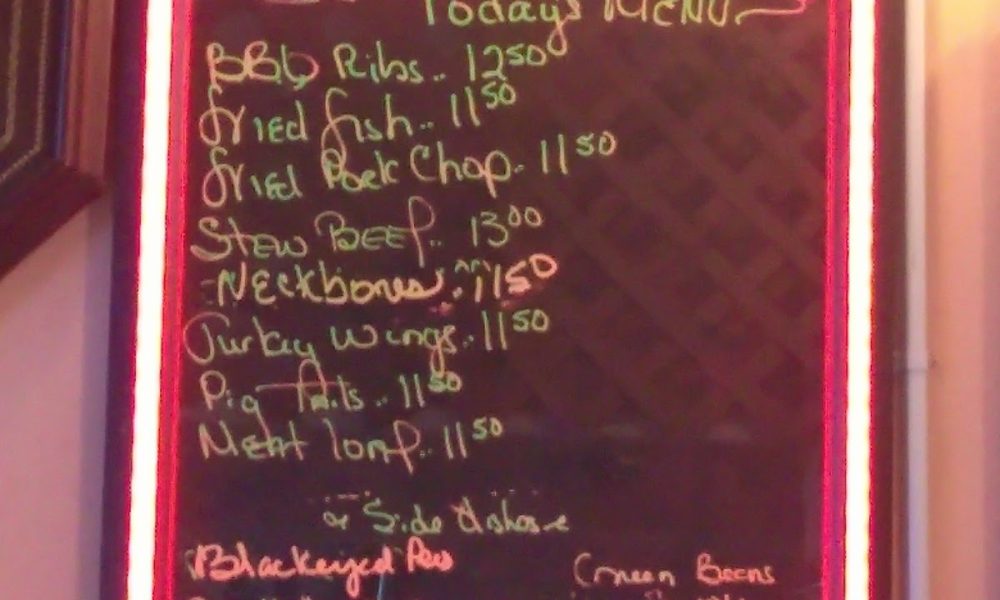 Today's MENU
BBQ Ribs.. 12 50
fried fish.. 11 50
fried Pork Chop.. 11 50
Stew BEEf.. 13 00
NEckbones.. 11 50
Turkey wings.. 11 50
Pig Tails.. 11 50
Meat loaf.. 11 50
Side dishes
Blackeyed Peas Green Beens